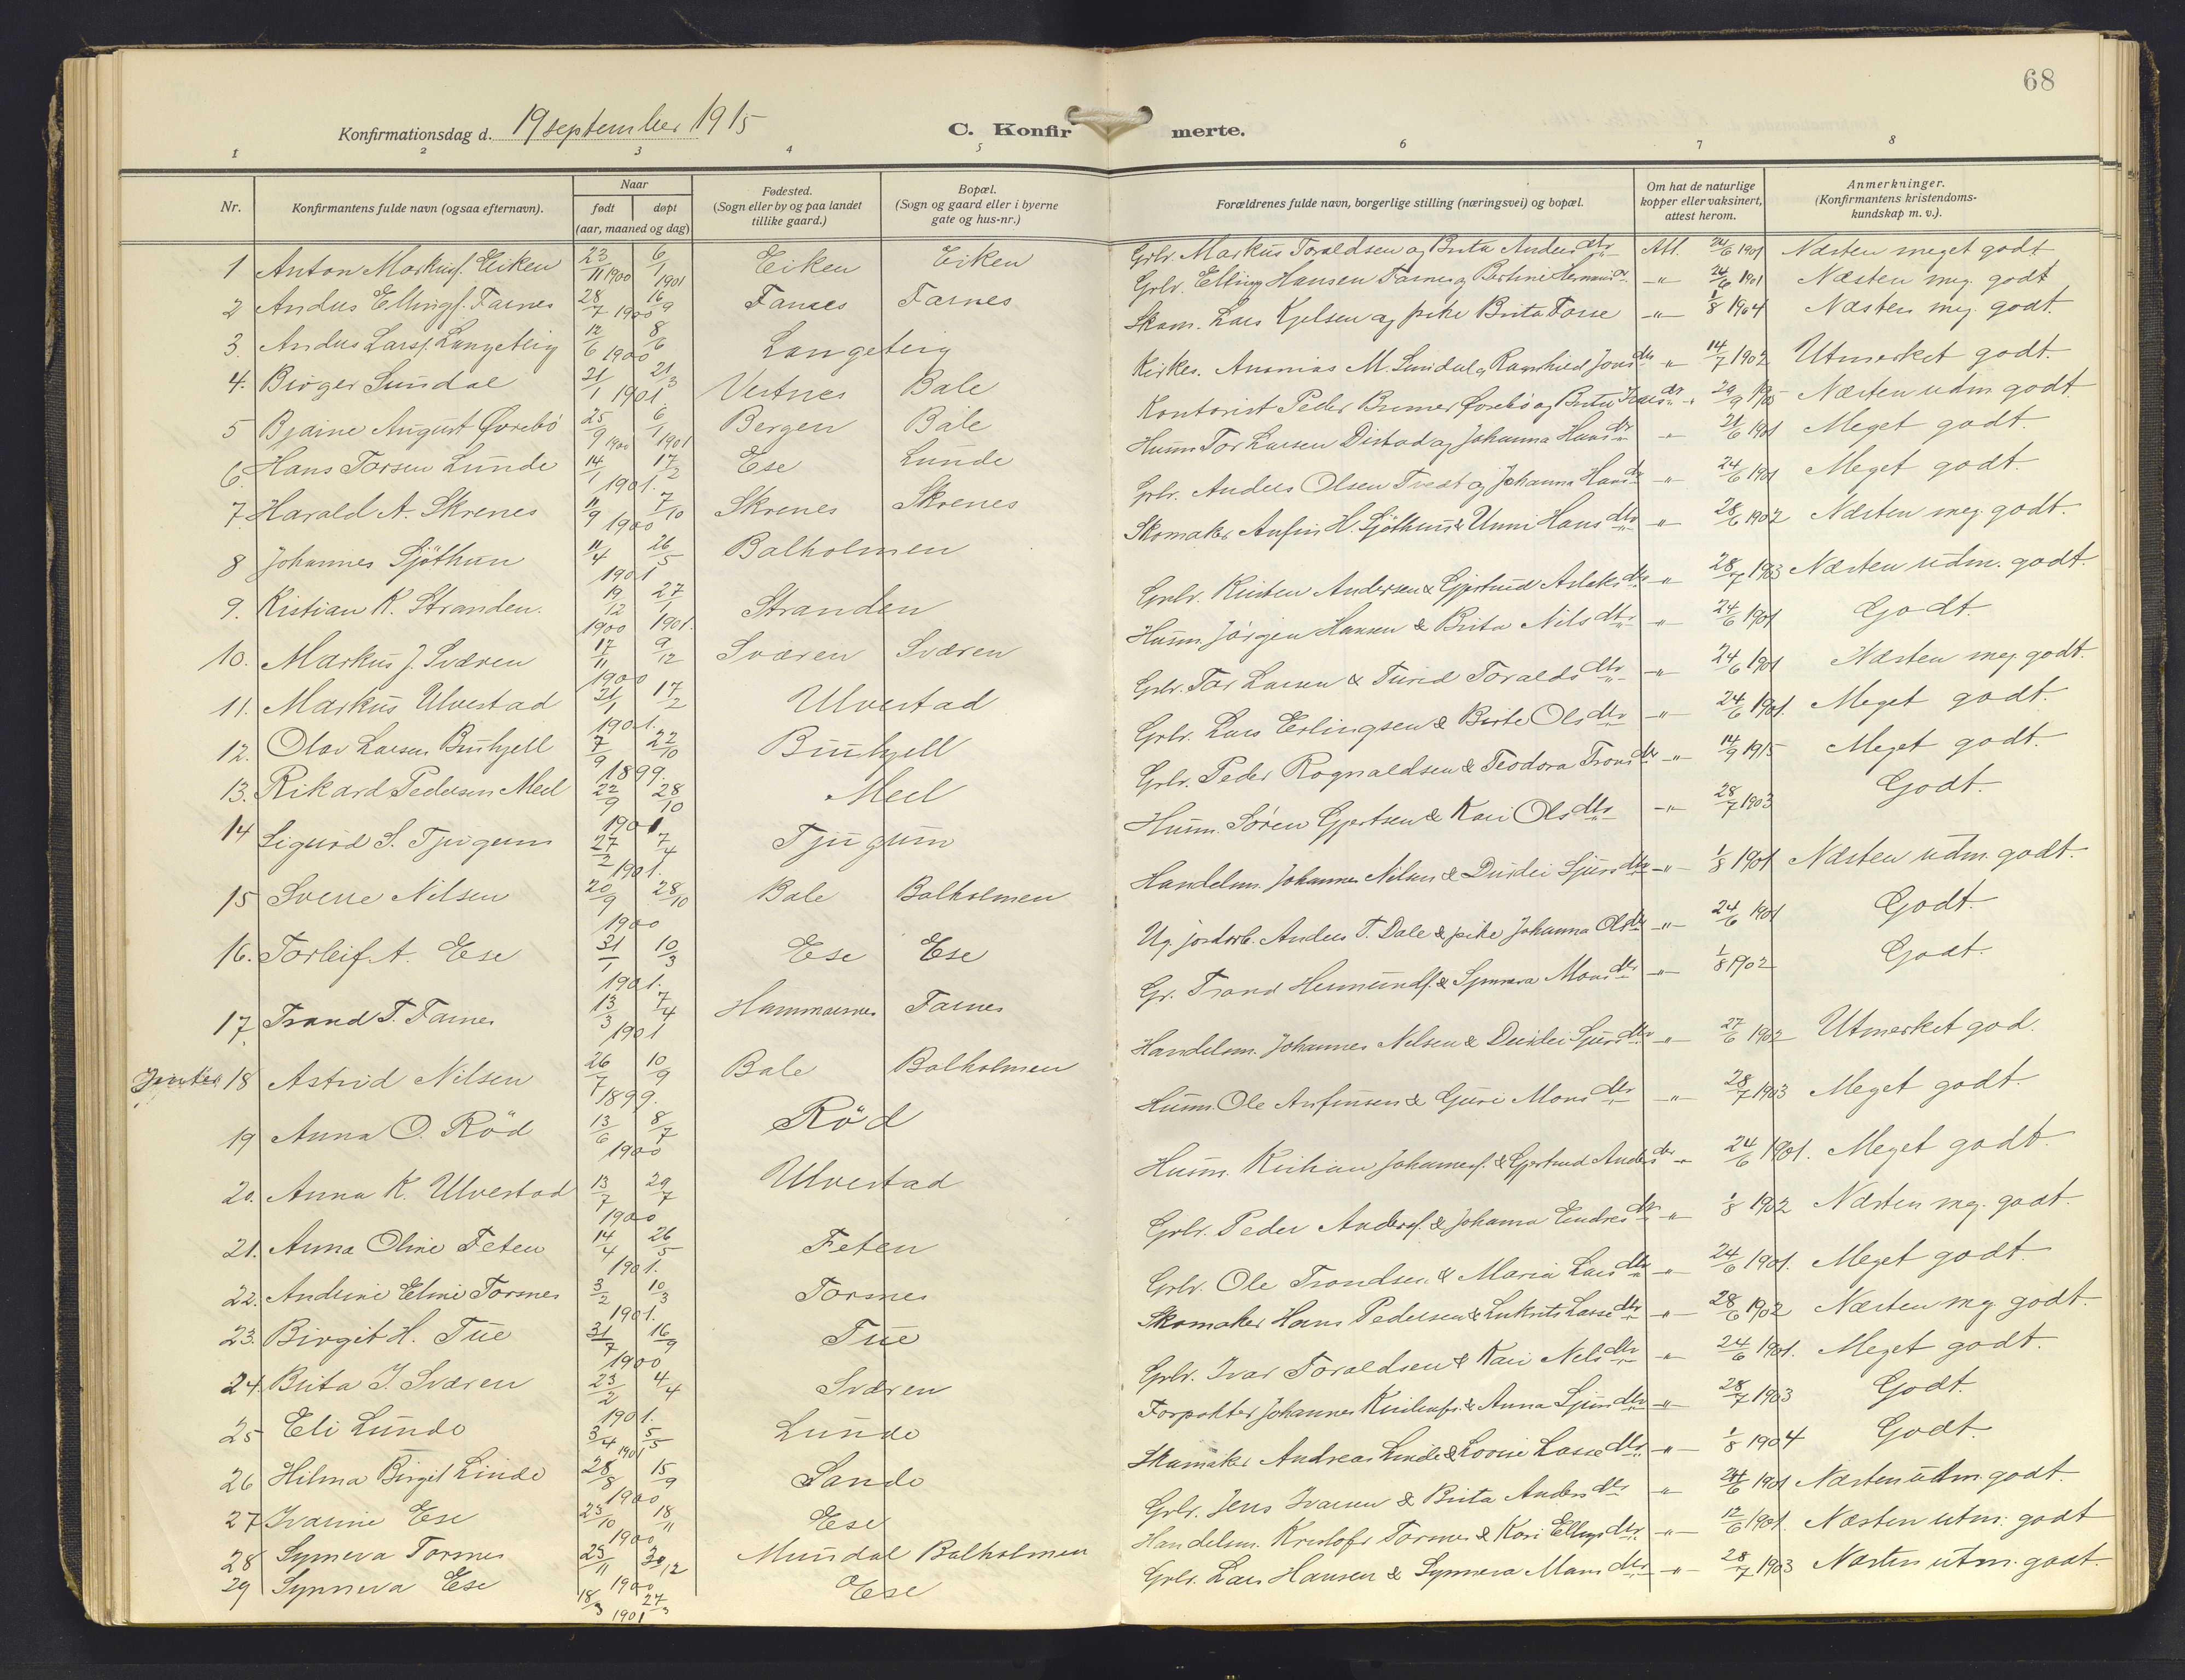 68
Konfirmationsdag d. 19 september 1915 C. Konfir merte.
1 2 3 4 5 6 7 8
Nr. Konfirmantens fulde navn (ogsaa efternavn). Naar født døpt (aar, maaned og dag) Fødested. (Sogn eller by og paa landet tillike gaard.) Bopæl. (Sogn og gaard eller i byerne gate og hus-nr.) Forældrenes fulde navn, borgerlige stilling (næringsvei) og bopæl. Om hat de naturlige kopper eller vaksinert, attest herom. Anmerkninger. (Konfirmantens kristendoms-kundskap m. v.).
1 Anton Markusf. Eiken 23/11 1900 6/1 1901 Eiken Eiken Grbr. Markus Toraldsen og Brita Andersdtr Att. 24/6 1901 Næsten meget godt
2 Anders Ellingf. Farnes 28/7 1900 16/9 Farnes Farnes Grbr. Elling Hansen Farnes og Bertine -"- 24/6 1901 Næsten meg. godt
3. Anders Larsf. Langeteig 12/6 1900 8/6 Langeteig Skom. Lars Kjelsen og pike Brita Farse -"- 1/8 1904 Næsten meg. godt.
4. Birger Sundal 21/1 1901 21/3 Vestnes Bale Kirkes. Ananias M. Sundal og Ragnhild Jonsdtr " 14/7 1902 Utmerket godt.
5 Bjarne August Øvrebö 25/9 1900 6/1 1901 Bergen Bale Kontorist Peder Bremer Øvrebö og Brita " 29/9 1905 Næsten udm. godt.
6. Hans Torsen Lunde 14/1 1901. 17/2 Ese Lunde Husm. Tor Larsen Distad og Johanna Hansdtr " 21/6 1901 Meget godt.
7. Harald A. Skrenes 11/9 1900 7/10 Skrenes Skrenes Grbr. Anders Olsen Tveit og Johanna Hansdtr -"- 24/6 1901 Meget godt.
8 Johannes Sjöthun 11/4 1901 26/5 Balholmen Skomaker Anfin H. Sjöthun & Unni Hansdtr -"- 28/6 1902 Næsten meg. godt.
9. Kistian K. Stranden. 19/12 1900 27/1 1901. Stranden Grbr. Kristen Andersen & Gjertrud Aslaksdtr -"- 28/7 1903 Næsten udm. godt.
10. Markus J. Sværen 17/11 1900 9/12 Sværen Sværen Husm. Jörgen Hansen & Brita Nilsdtr -"- 24/6 1901 Godt.
11. Markus Ulvestad 21/1 1901. 17/2 Ulvestad Grbr. Tor Larsen & Turid Toraldsdtr -"- 24/6 1901 Næsten meg. godt.
12. Olav Larsen Buhjell 7/9 1899. 22/10 Buhjell Grbr. Lars Erlingsen & Birte Olsdtr -"- 24/6 1901. Meget godt.
13. Rikard Pedersen Meel 22/9 1901 28/10 Meel Grbr. Peder Rognaldsen & Teodora Tronsdtr -"- 14/9 1915 Meget godt.
14 Sigurd S. Tjugum 27/2 1901. 7/4 Tjugum Husm. Sören Gjertsen & Kari Olsdtr -"- 28/7 1903 Godt.
15 Sverre Nilsen 20/9 1900 28/10 Bale Balholmen Handelsm. Johannes Nilsen & Durdei Sjursdtr -"- 1/8 1901 Næsten udm. godt.
16. Torleif A. Ese 31/1 1901. 10/3 Ese Ese Ug. jordarb. Anders T. Dale & pike Johanna Olsdtr -"- 24/6 1901 Godt.
17. Trond T. Farnes 13/3 1901 7/4 Hammarnes Farnes Gr. Trond Hermundf. & Synneva Monsdtr -"- 1/8 1902 Godt.
Jenter 18 Astrid Nilsen 26/7 1899. 10/9 Bale Balholmen Handelsm. Johannes Nilsen & Durdei Sjursdtr -"- 27/6 1902 Utmerket god.
19 Anna O. Röd 13/6 1900 8/7 Röd Husm. Ole Anfinsen & Guri Monsdtr -"- 28/7 1903 Meget godt.
20. Anna K. Ulvestad 13/7 1900 29/7 Ulvestad Husm. Kristian Johannesf. & Gjertrud Andersdtr " 24/6 1901. Meget godt.
21. Anna Oline Feten 14/4 1901. 26/5 Feten Grbr. Peder Andersf. & Johanna Endresdtr " 1/8 1902 Næsten meg. godt.
22. Andrine Eline Torsnes 3/2 1901. 10/3 Torsnes Grbr. Ole Trondsen & Maria Larsdtr -"- 24/6 1901. Meget godt.
23. Birgit H. Tue 31/7 1900 16/9 Tue Skomaker Hans Pedersen & Lukrits Lassedtr -"- 28/6 1902 Næsten meg. godt.
24. Brita I. Sværen 23/2 1901. 4/4 Sværen Grbr. Ivar Toraldsen & Kari Nelsdtr " 24/6 1901. Meget godt.
25 Eli Lunde 3/4 1901 5/5 Lunde Forpakter Johannes & Anna Sjursdtr -"- 28/7 1903 Godt.
26 Hilma Birgit Linde 28/8 1900 15/9 Sande Skomaker Andreas Linde & Lovise Lassedtr -"- 1/8 1904 Godt.
27 Ivarine Ese 23/10 1900 18/11 Ese Grbr. Jens Ivarsen & Brita Andersdtr " 24/6 1901 Næsten utm. godt.
28 Synneva Torsnes 25/11 1900 30/12 Mundal Balholmen Handelsm. Kristofer Torsnes & Kari Ellingsdtr -"- 12/6 1901. Næsten utm. godt
29 Synneva Ese 18/3 1901 27/3 Ese Grbr. Lars Hansen & Synneva Monsdtr -"- 28/7 1903 Næsten utm. godt.